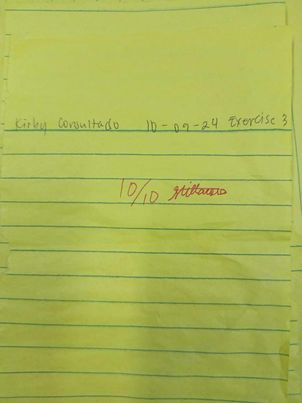 Kirby Corultado 10-09-24 Exercise 3
10/10